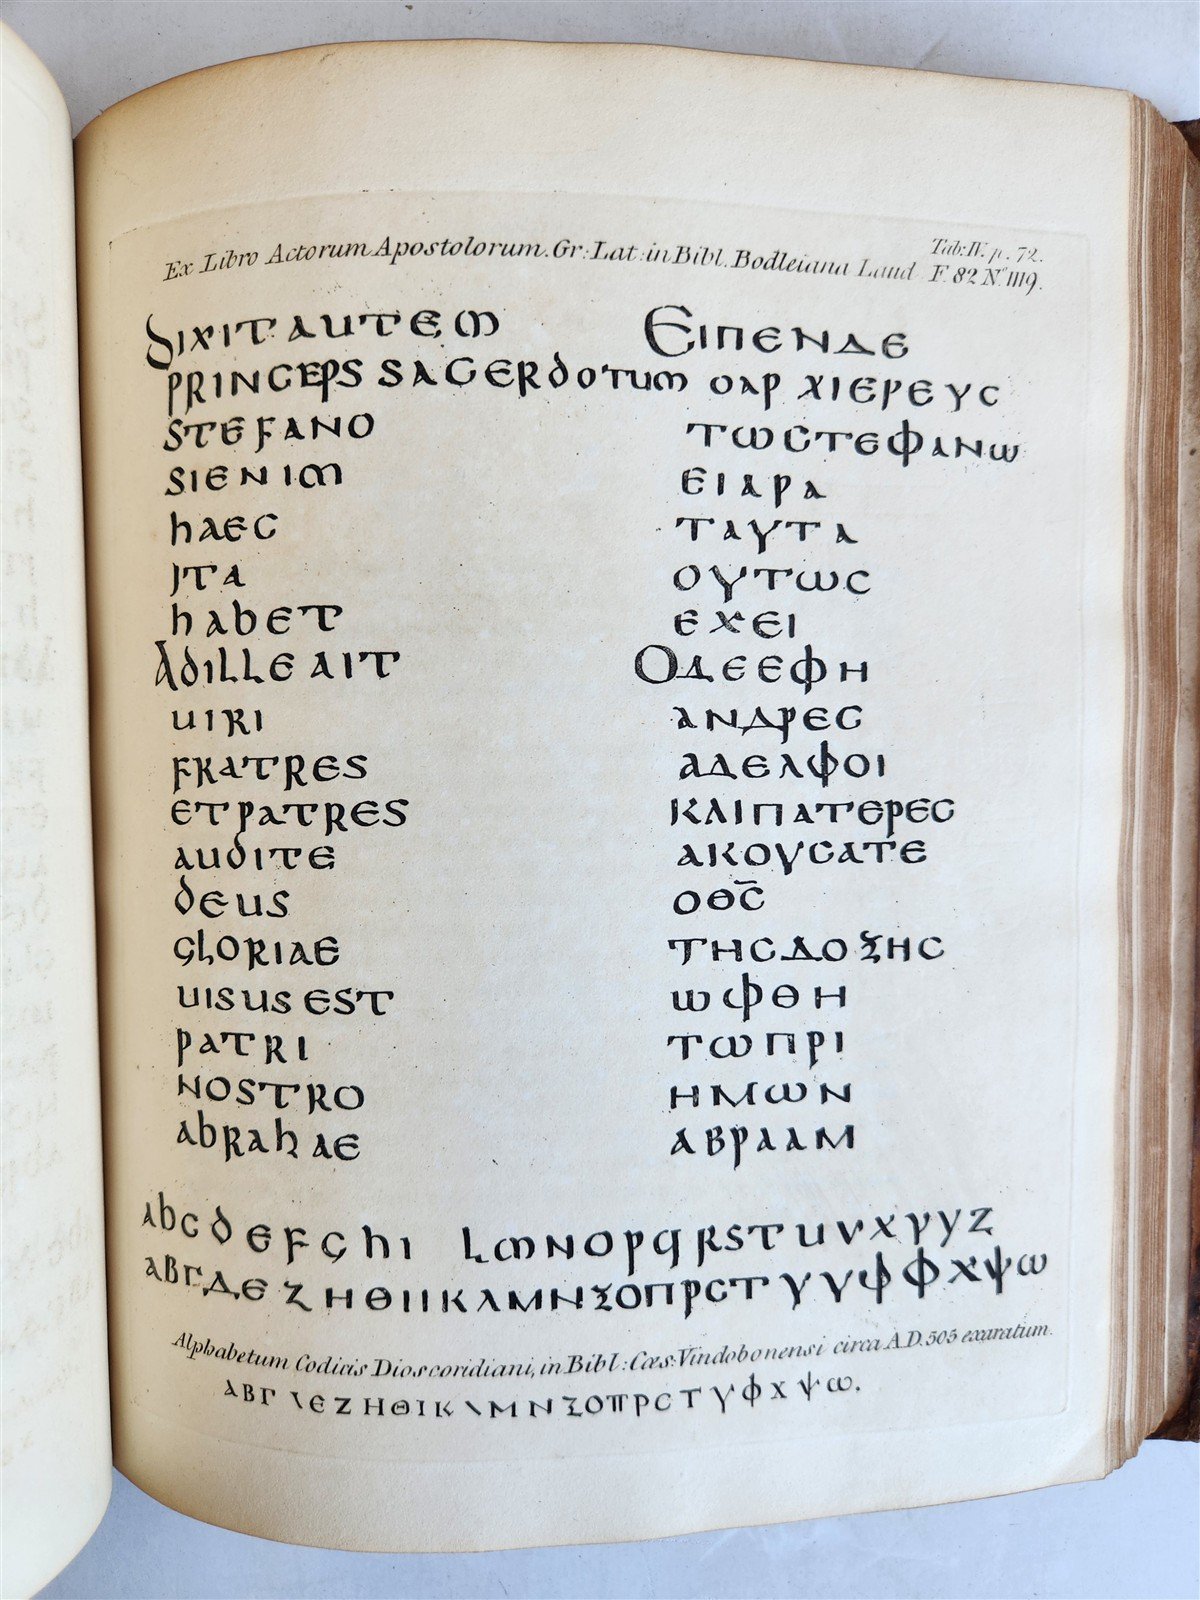 Ex Libro Actorum Apostolorum. Gr: Lat: in Bibl. Bodleiana Laud F. 82 Nº. 1119.
Tab: IV. p. 72.
DIXIT AUTEM ΕΙΠΕΝ ΔΕ
PRINCEPS SACERDOTUM Ο ΑΡΧΙΕΡΕΥϹ
STEFANO ΤΩ ϹΤΕΦΑΝΩ
SI ENIM ΕΙ ΑΡΑ
hAEC ΤΑΥΤΑ
ITA ΟΥΤΩϹ
hAbET ΕΧΕΙ
AD ILLE AIT Ο ΔΕ ΕΦΗ
UIRI ΑΝΔΡΕϹ
FRATRES ΑΔΕΛΦΟΙ
ET PATRES ΚΑΙ ΠΑΤΕΡΕϹ
AUDITE ΑΚΟΥϹΑΤΕ
DEUS Ο ΘϹ̅
GLORIAE ΤΗϹ ΔΟΞΗϹ
UISUS EST ΩΦΘΗ
PATRI ΤΩ ΠΡΙ
NOSTRO ΗΜΩΝ
AbRAhAE ΑΒΡΑΑΜ
A b C D E F G h I L M N O P q R S T U V X Y Y Z
Α Β Γ Δ Ε Ζ Η Θ Ι Ι Κ Λ Μ Ν Ξ Ο Π Ρ Ϲ Τ Υ Υ Φ Φ Χ Ψ Ω
Alphabetum Codicis Dioscoridiani, in Bibl: Cæs: Vindobonensi circa A.D. 505 exaratum.
Α Β Γ Δ Ε Ζ Η Θ Ι Κ Λ Μ Ν Ξ Ο Π Ρ Ϲ Τ Υ Φ Χ Ψ Ω.